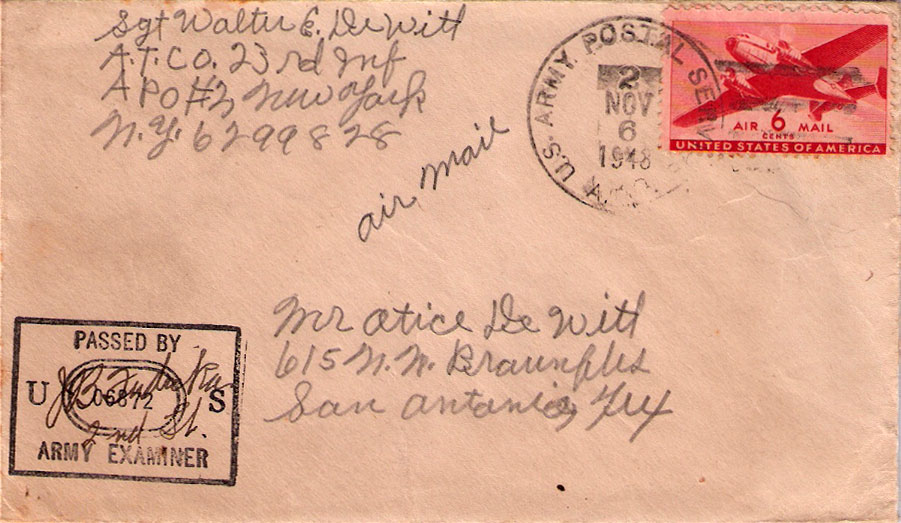 Sgt Walter E. De Witt
A.T. Co. 23rd Inf
A P O #2 New York
N.Y. 6299828
U.S. ARMY POSTAL SERV
2
NOV
6
1943
AIR 6 MAIL
CENTS
UNITED STATES OF AMERICA
air mail
Mr Otice De Witt
615 N.N. Braunfles
San Antonio, Tex
PASSED BY
U 06872 S
2nd Lt.
ARMY EXAMINER